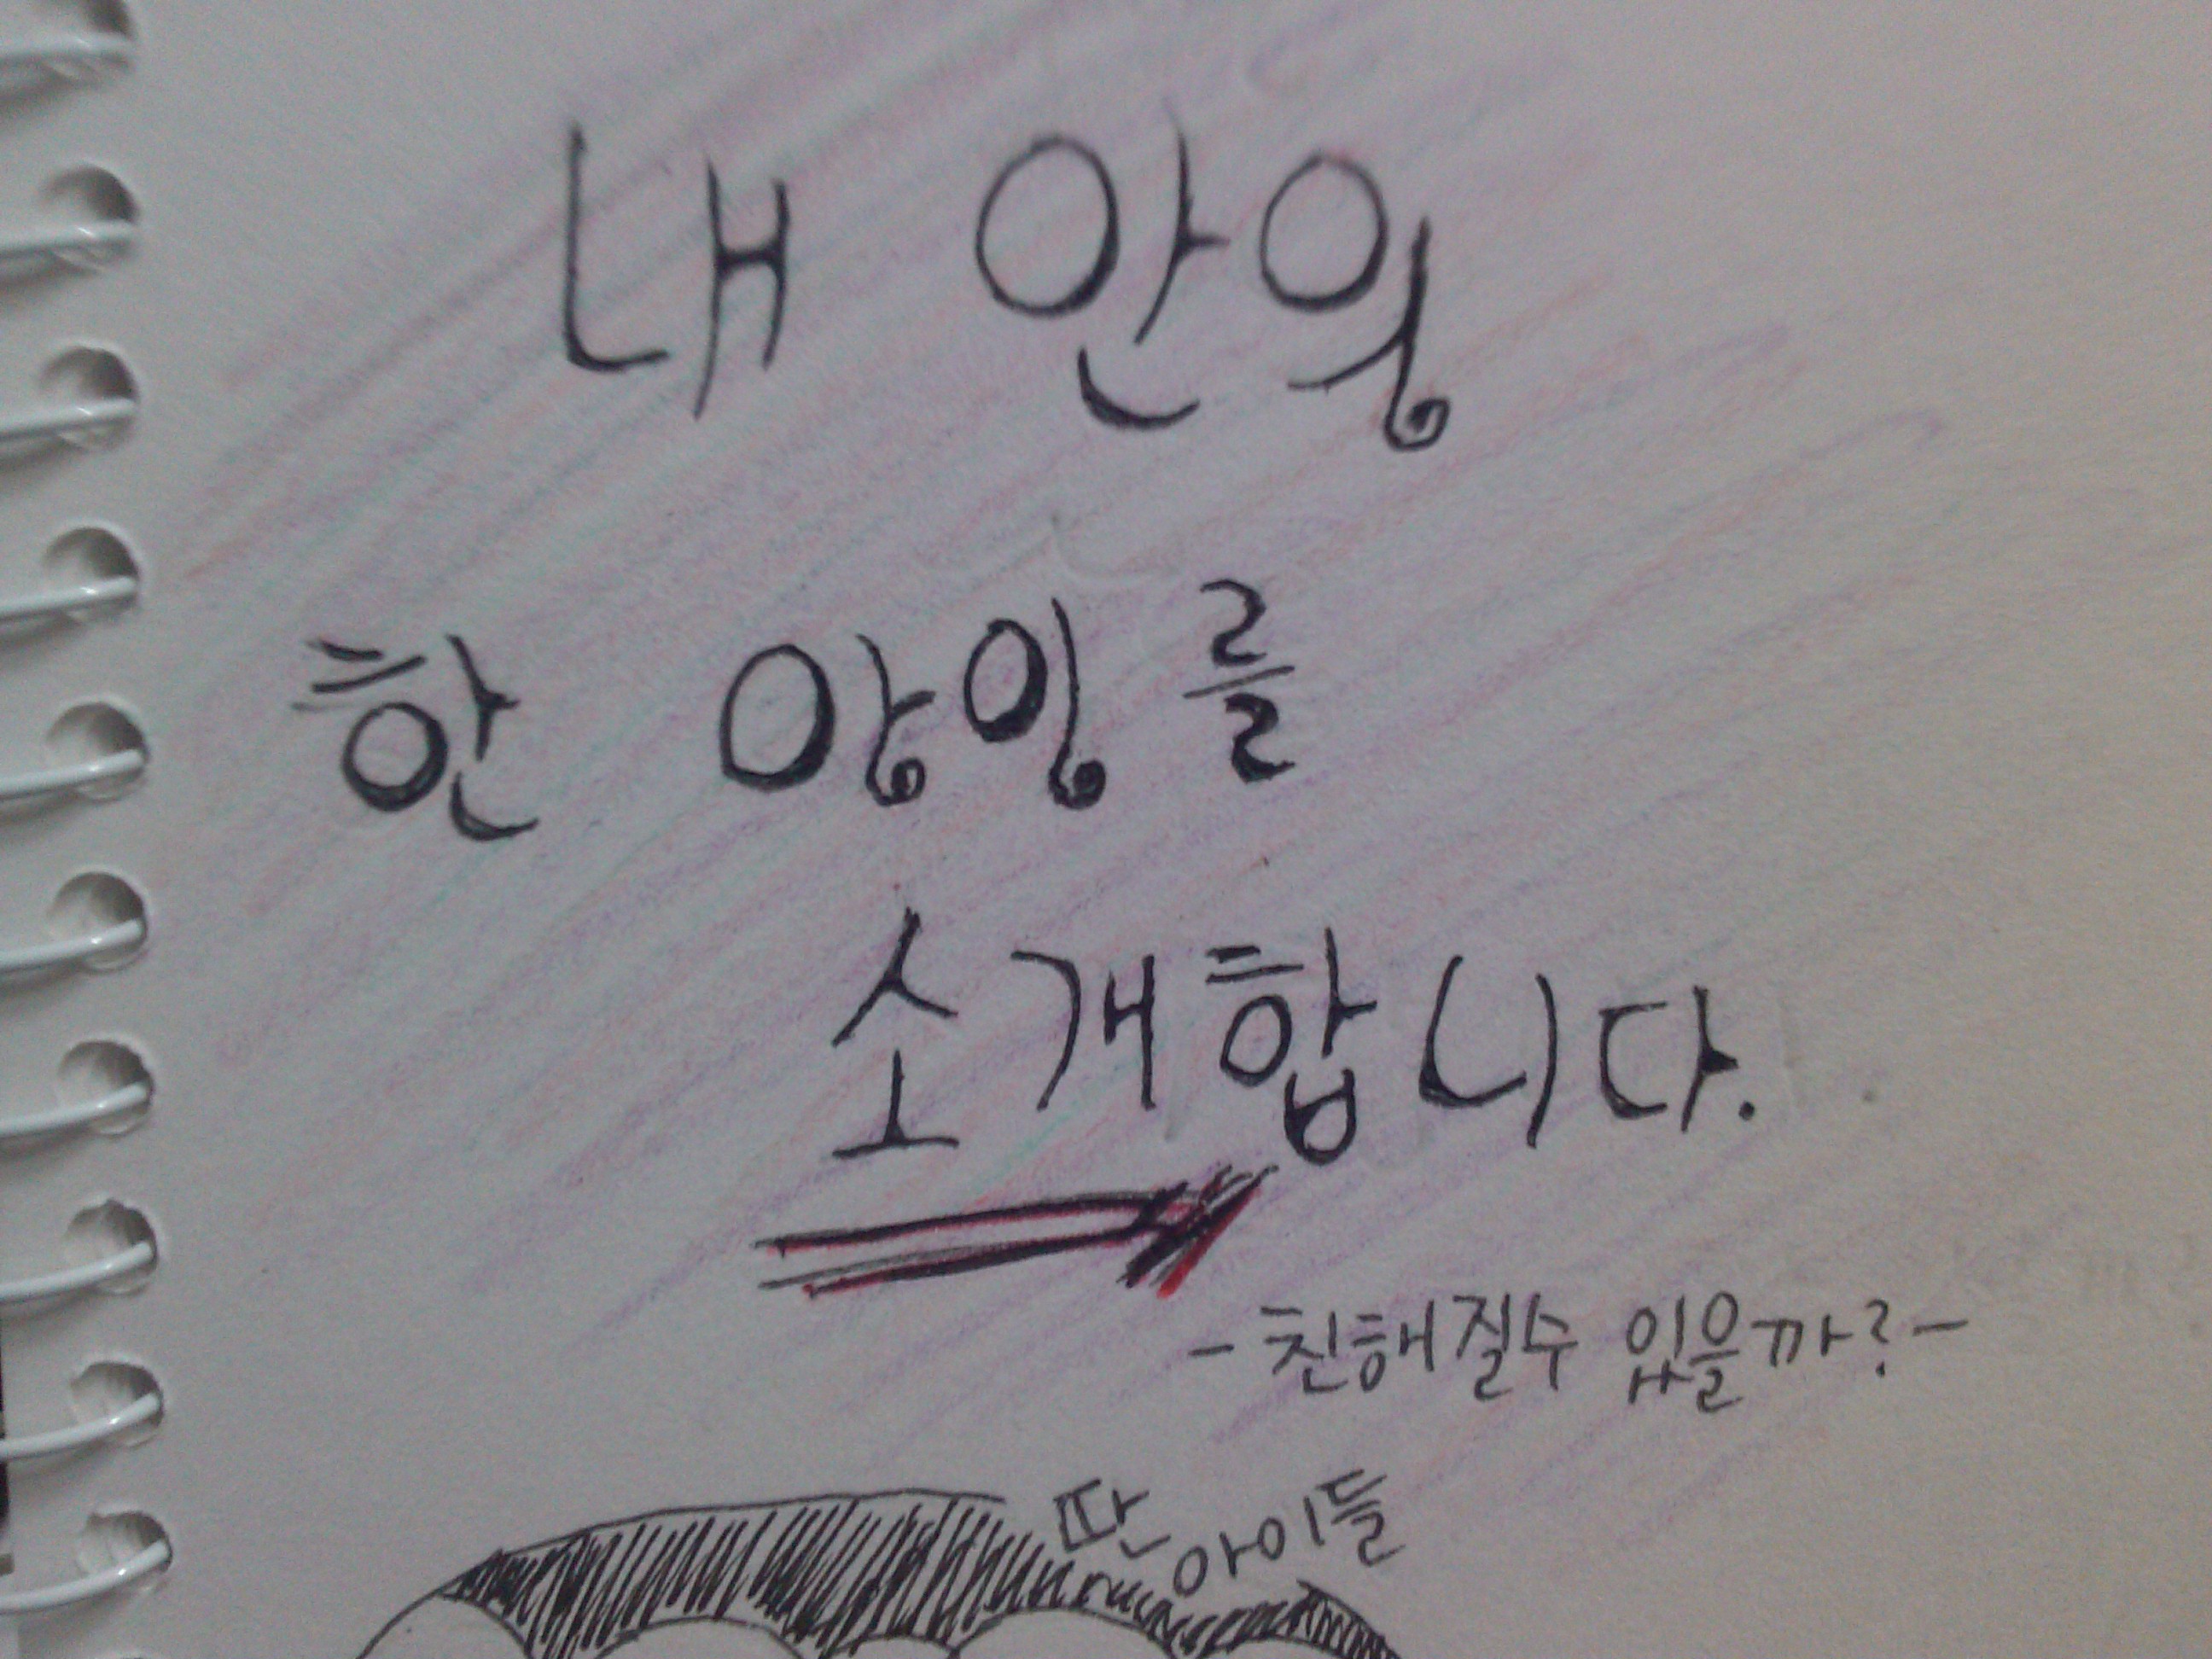 내 안의
한 아이를
소개합니다.
-친해질수 있을까?-
딴
아이들